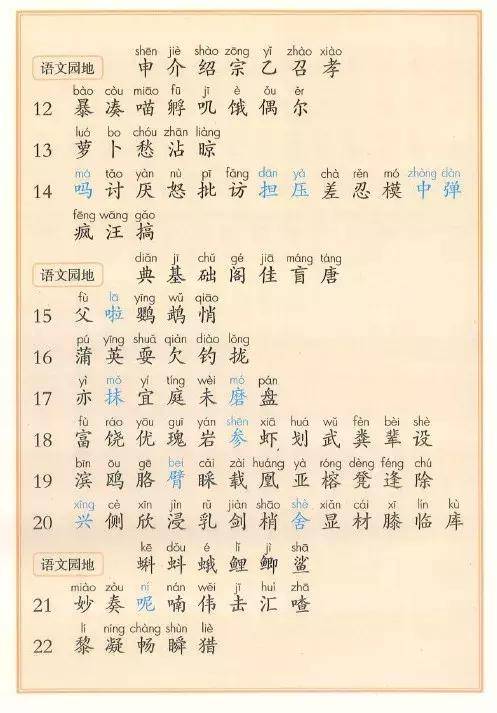 shēn jiè shào zōng yǐ zhào xiào
语文园地 申 介 绍 宗 乙 召 孝
bào còu miāo fū jī è ǒu ěr
12 暴 凑 喵 孵 叽 饿 偶 尔
luó bo chóu zhān liàng
13 萝 卜 愁 沾 晾
má tǎo yàn nù pī fǎng dān yā chà rěn mó zhòng dàn
14 吗 讨 厌 怒 批 访 担 压 差 忍 模 中 弹
fēng wāng gǎo
疯 汪 搞
diǎn jī chǔ gé jiā máng táng
语文园地 典 基 础 阁 佳 盲 唐
fù lā yīng wǔ qiāo
15 父 啦 鹦 鹉 悄
pú yīng shuǎ qiàn diào lǒng
16 蒲 英 耍 欠 钓 拢
yì mǒ yí tíng wèi mó pán
17 亦 抹 宜 庭 未 磨 盘
fù ráo yōu guī yán shēn xiā huá wǔ fèn bèi shè
18 富 饶 优 瑰 岩 参 虾 划 武 粪 辈 设
bīn ōu gē bei cǎi zài huáng yà róng dèng féng chú
19 滨 鸥 胳 臂 睬 载 凰 亚 榕 凳 逢 除
xīng cè xīn jìn rǔ jiàn shāo shè xiǎn cái xī lín kù
20 兴 侧 欣 浸 乳 剑 梢 舍 显 材 膝 临 库
kē dǒu é lǐ jì shā
语文园地 蝌 蚪 蛾 鲤 鲫 鲨
miào zòu ní nán wěi jī huì zhā
21 妙 奏 呢 喃 伟 击 汇 喳
lí níng chàng shùn liè
22 黎 凝 畅 瞬 猎